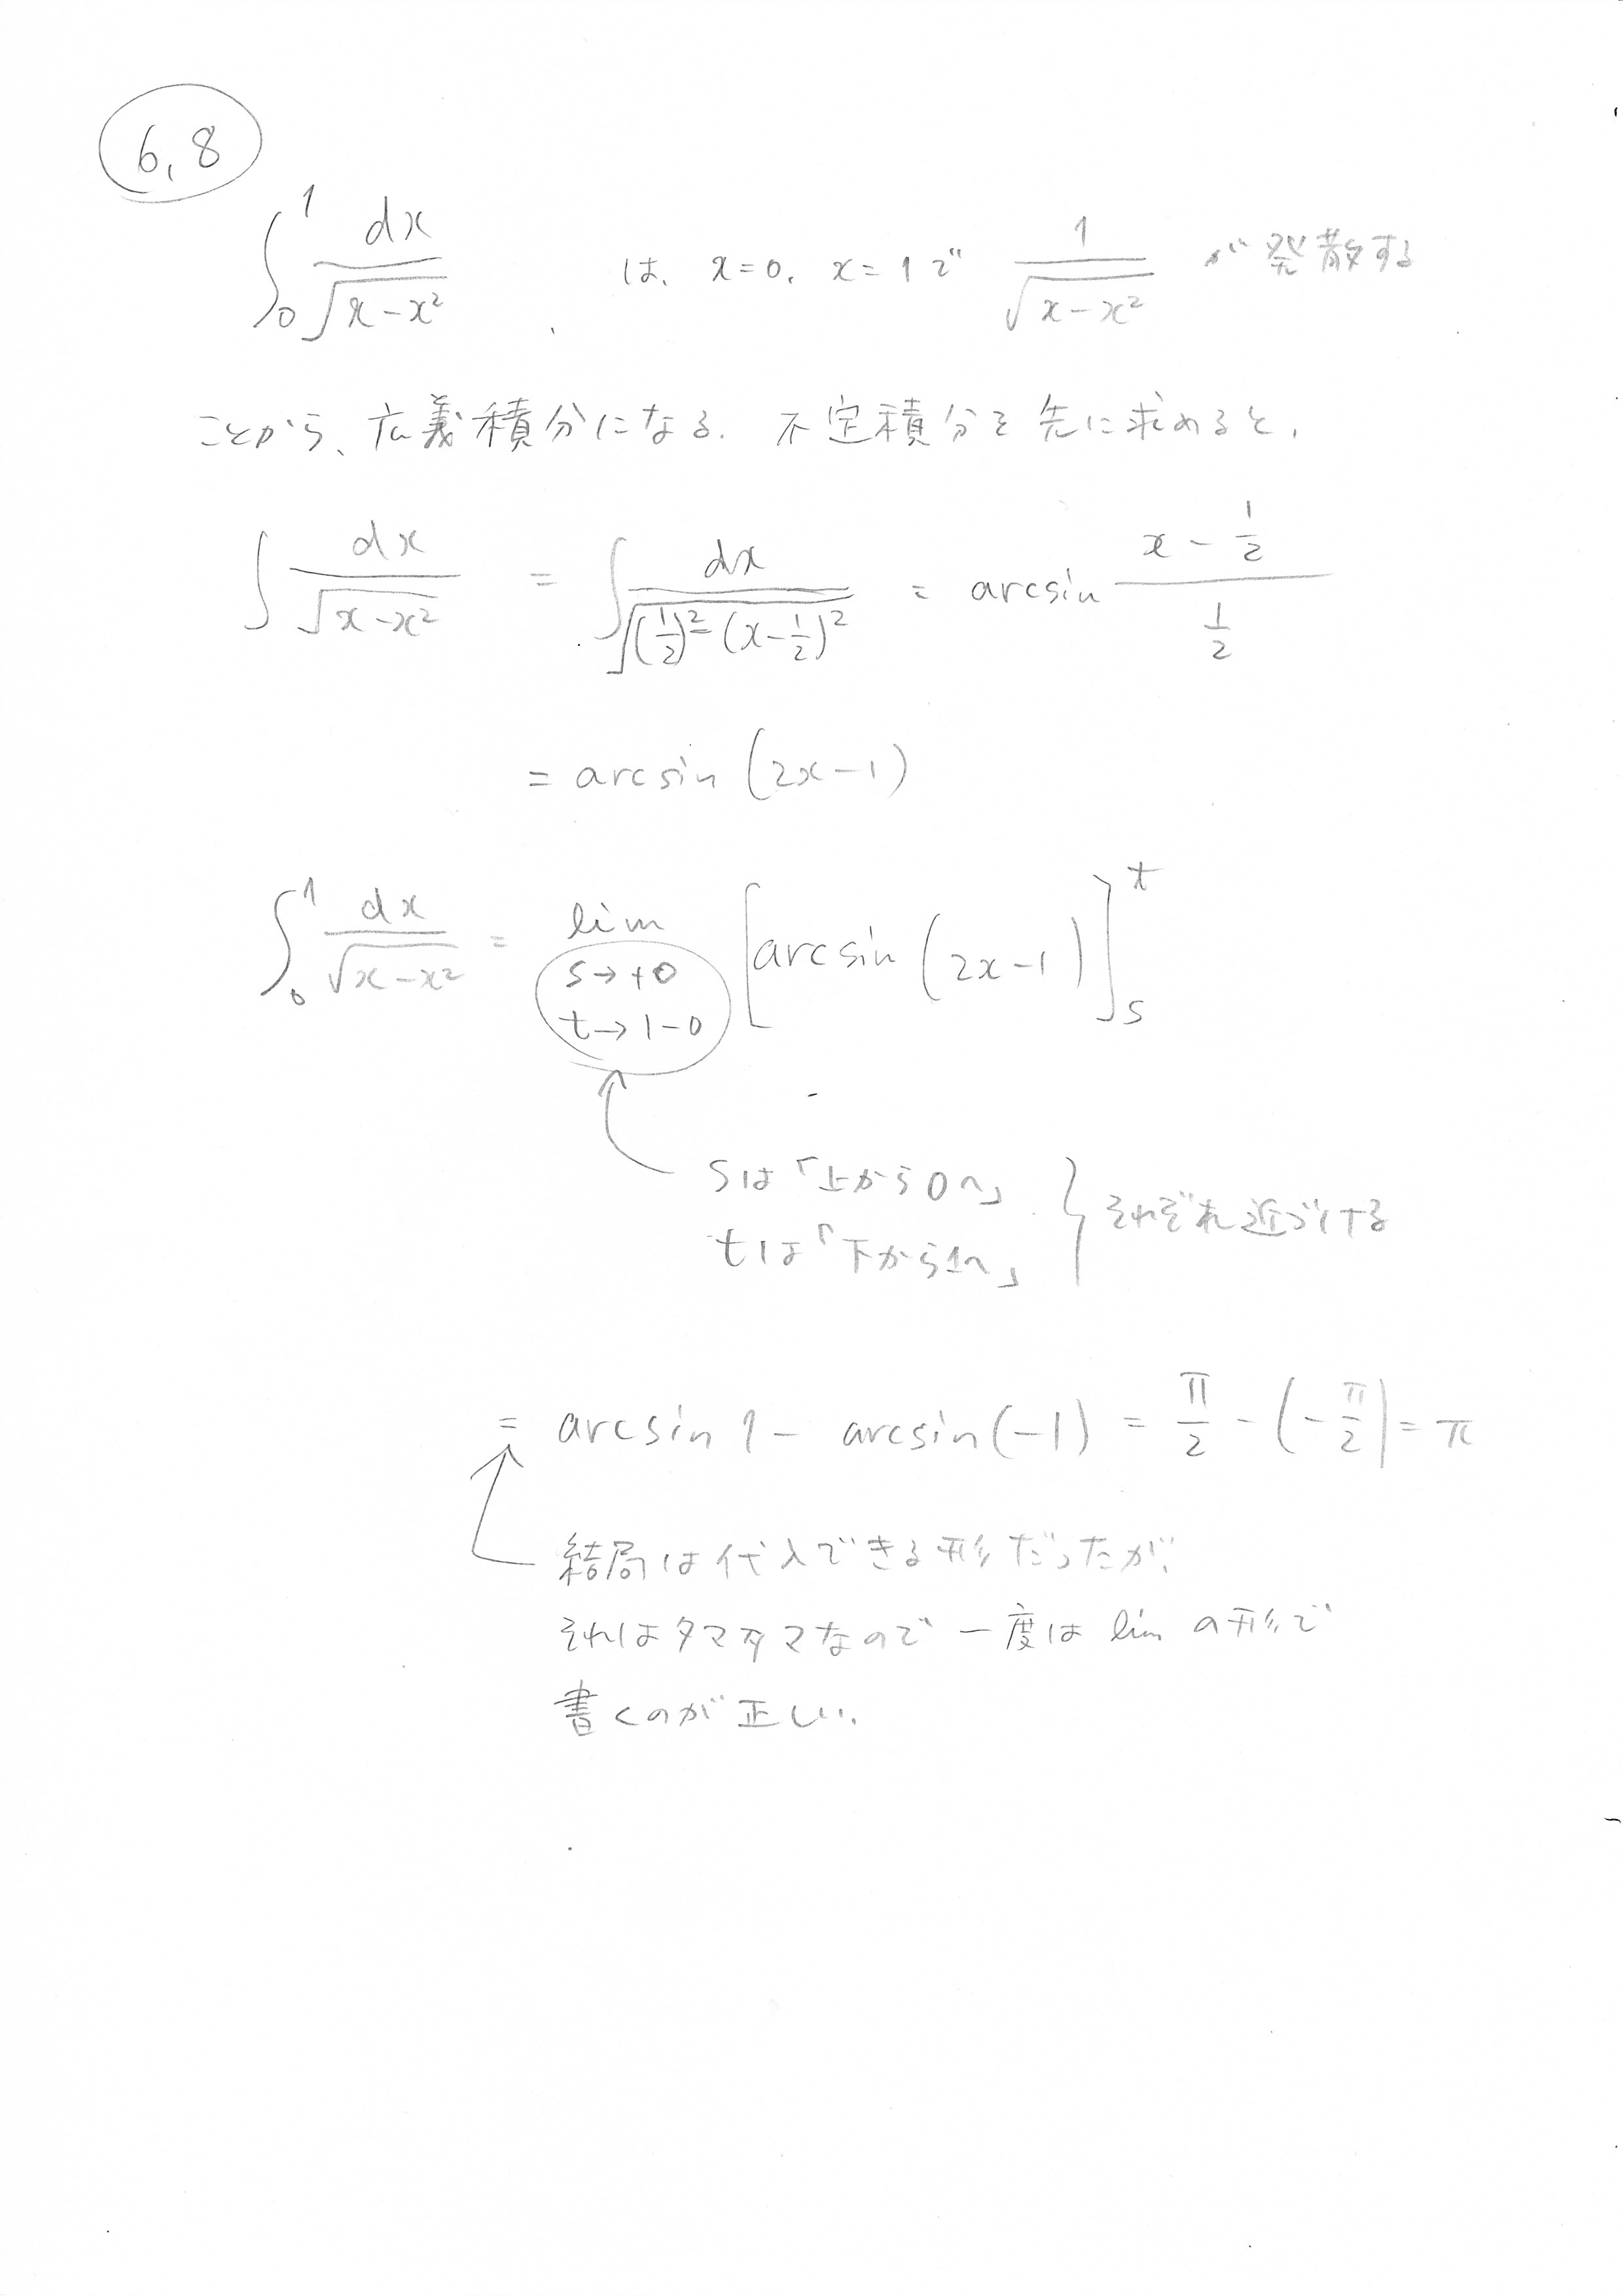 6.8
∫₀¹ dx/√(x-x²) は、x=0, x=1で 1/√(x-x²) が発散する
ことから、広義積分になる. 不定積分を先に求めると,
∫ dx/√(x-x²) = ∫ dx/√((1/2)²-(x-1/2)²) = arcsin (x-1/2)/(1/2)
= arcsin (2x-1)
∫₀¹ dx/√(x-x²) = lim s→+0 t→1-0 [arcsin (2x-1)]ₛᵗ
sは「上から0へ」
tは「下から1へ」 } それぞれ近づける
= arcsin 1 - arcsin(-1) = π/2 - (-π/2) = π
結局は代入できる形だったが、
それはタマタマなので一度は lim の形で
書くのが正しい.